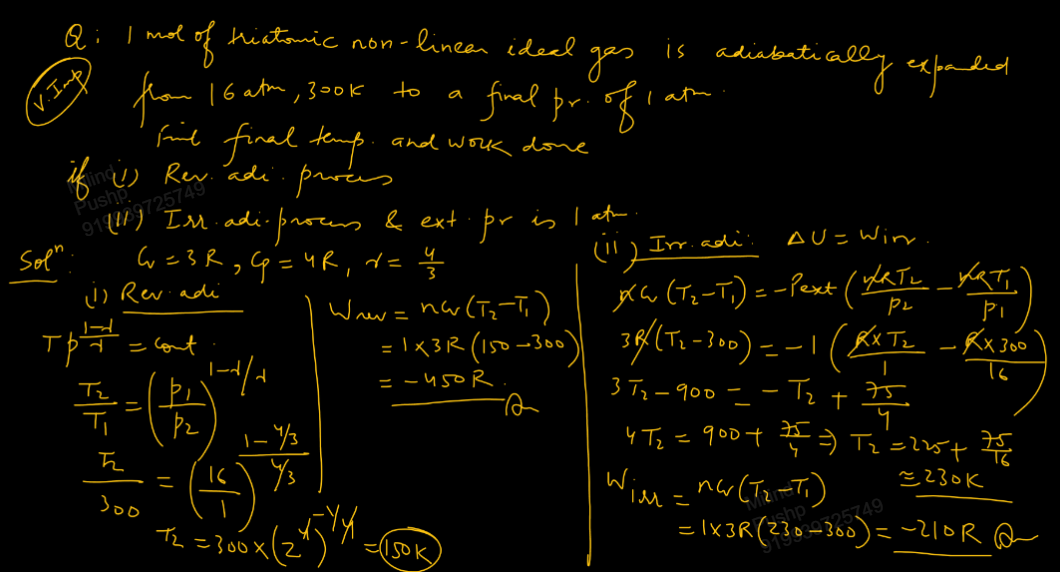 Q: 1 mol of triatomic non-linear ideal gas is adiabatically expanded
V. Imp
from 16 atm, 300K to a final pr. of 1 atm.
Find final temp. and work done
if (i) Rev. adi. process
(ii) Irr. adi. process & ext. pr is 1 atm.
Milind
Pushp
919939725749
Solⁿ: Cv = 3R, Cp = 4R, γ = 4/3
(i) Rev. adi
T p^(1-γ/γ) = cont.
T2/T1 = (p1/p2)^(1-γ/γ)
T2/300 = (16/1)^((1-4/3)/(4/3))
T2 = 300 × (2^4)^(-1/4) = 150K
Wrev = nCv (T2 - T1)
= 1 × 3R (150 - 300)
= -450R.
(ii) Irr. adi: ΔU = Wirr.
nCv (T2 - T1) = -Pext (nRT2/p2 - nRT1/p1)
3R (T2 - 300) = -1 (R×T2/1 - R×300/16)
3T2 - 900 = - T2 + 75/4
4T2 = 900 + 75/4 ⇒ T2 = 225 + 75/16
≅ 230K
Wirr = nCv (T2 - T1)
= 1×3R (230 - 300) = -210R
Milind
Pushp
919939725749